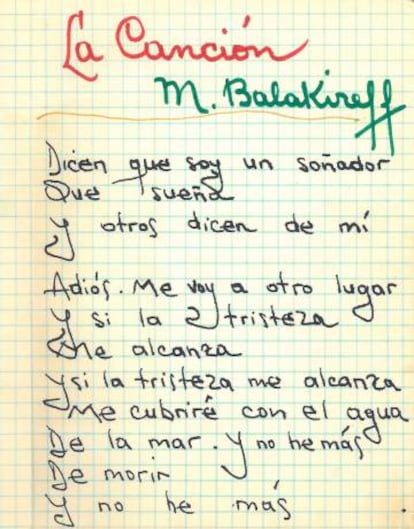 La Canción
M. Balakireff
Dicen que soy un soñador
Que sueña
Y otros dicen de mí
Adiós. Me voy a otro lugar
Y si la tristeza
Me alcanza
Y si la tristeza me alcanza
Me cubriré con el agua
De la mar. Y no he más
De morir
Y no he más